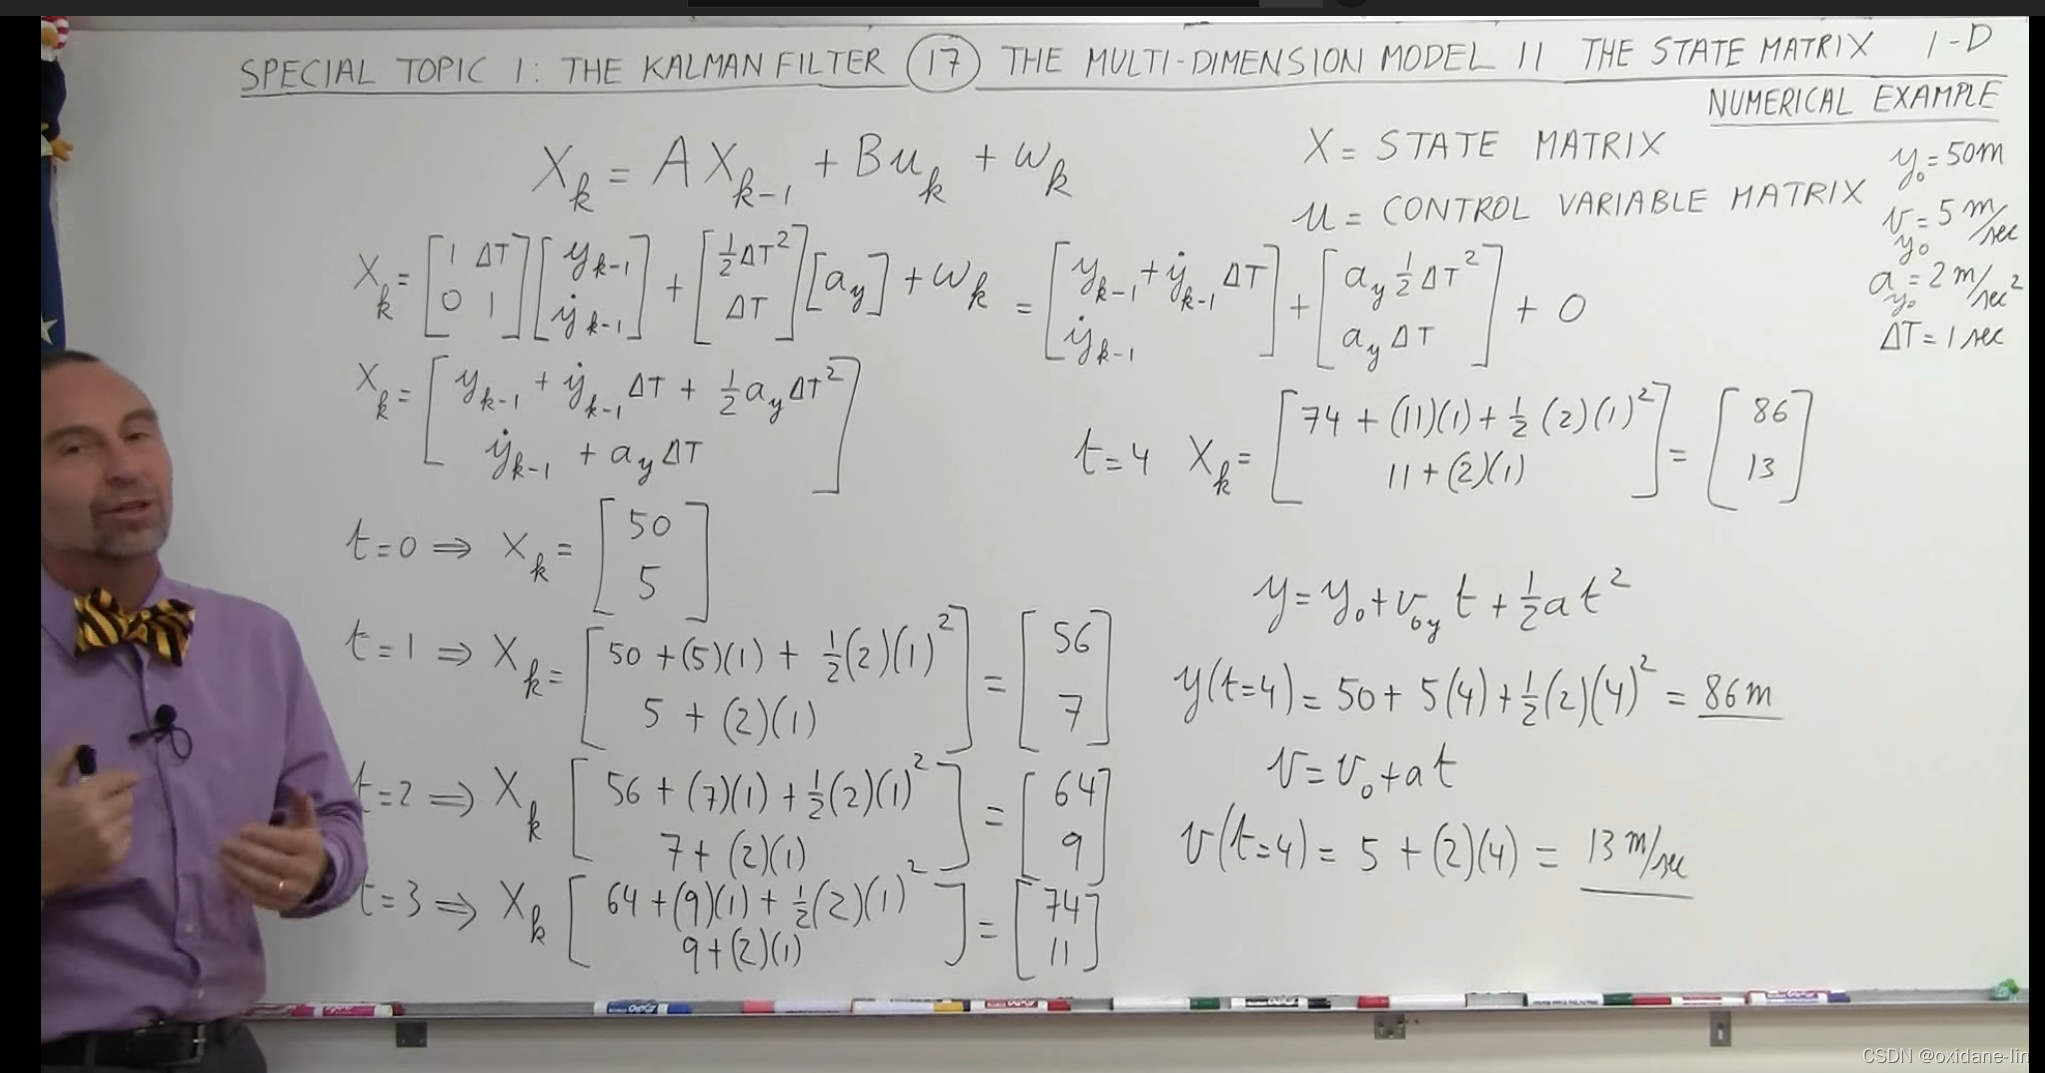 SPECIAL TOPIC 1: THE KALMAN FILTER (17) THE MULTI-DIMENSION MODEL 11 THE STATE MATRIX 1-D
NUMERICAL EXAMPLE
X_k = AX_{k-1} + Bu_k + w_k
X = STATE MATRIX
u = CONTROL VARIABLE MATRIX
y_0 = 50m
v_{y0} = 5 m/sec
a_{y0} = 2 m/sec²
ΔT = 1 sec
X_k = [1 ΔT; 0 1] [y_{k-1}; ẏ_{k-1}] + [½ΔT²; ΔT] [a_y] + w_k = [y_{k-1} + ẏ_{k-1} ΔT; ẏ_{k-1}] + [a_y ½ ΔT²; a_y ΔT] + 0
X_k = [y_{k-1} + ẏ_{k-1} ΔT + ½ a_y ΔT²; ẏ_{k-1} + a_y ΔT]
t=0 ⇒ X_k = [50; 5]
t=1 ⇒ X_k = [50 + (5)(1) + ½(2)(1)²; 5 + (2)(1)] = [56; 7]
t=2 ⇒ X_k [56 + (7)(1) + ½(2)(1)²; 7 + (2)(1)] = [64; 9]
t=3 ⇒ X_k [64 + (9)(1) + ½(2)(1)²; 9 + (2)(1)] = [74; 11]
t=4 X_k = [74 + (11)(1) + ½ (2)(1)²; 11 + (2)(1)] = [86; 13]
y = y_0 + v_{0y} t + ½ a t²
y(t=4) = 50 + 5(4) + ½(2)(4)² = 86m
v = v_0 + at
v(t=4) = 5 + (2)(4) = 13 m/sec
CSDN @oxidane-lin